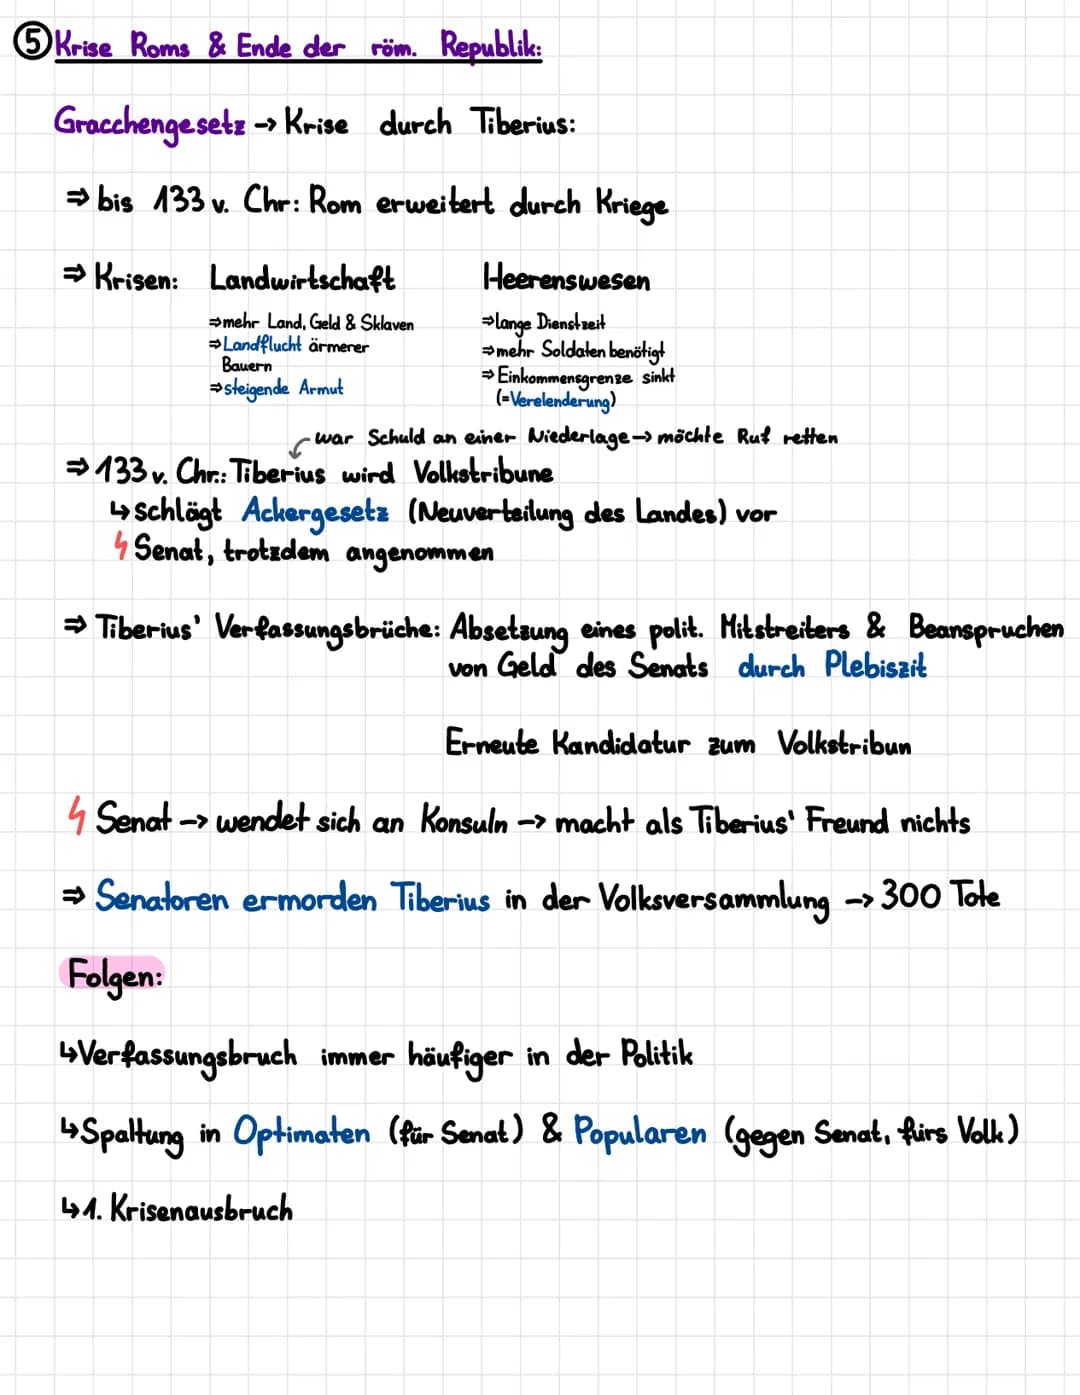 ⑤ Krise Roms & Ende der röm. Republik:
Gracchengesetz → Krise durch Tiberius:
⇒ bis 133 v. Chr: Rom erweitert durch Kriege
⇒ Krisen: Landwirtschaft Heerenswesen
⇒ mehr Land, Geld & Sklaven
⇒ Landflucht ärmerer
Bauern
⇒ steigende Armut
⇒ lange Dienstzeit
⇒ mehr Soldaten benötigt
⇒ Einkommensgrenze sinkt
(=Verelenderung)
war Schuld an einer Niederlage → möchte Ruf retten
⇒ 133 v. Chr.: Tiberius wird Volkstribune
↳ schlägt Ackergesetz (Neuverteilung des Landes) vor
↯ Senat, trotzdem angenommen
⇒ Tiberius' Verfassungsbrüche: Absetzung eines polit. Mitstreiters & Beanspruchen
von Geld des Senats durch Plebiszit
Erneute Kandidatur zum Volkstribun
↯ Senat → wendet sich an Konsuln → macht als Tiberius' Freund nichts
⇒ Senatoren ermorden Tiberius in der Volksversammlung → 300 Tote
Folgen:
↳ Verfassungsbruch immer häufiger in der Politik
↳ Spaltung in Optimaten (für Senat) & Popularen (gegen Senat, fürs Volk)
↳ 1. Krisenausbruch